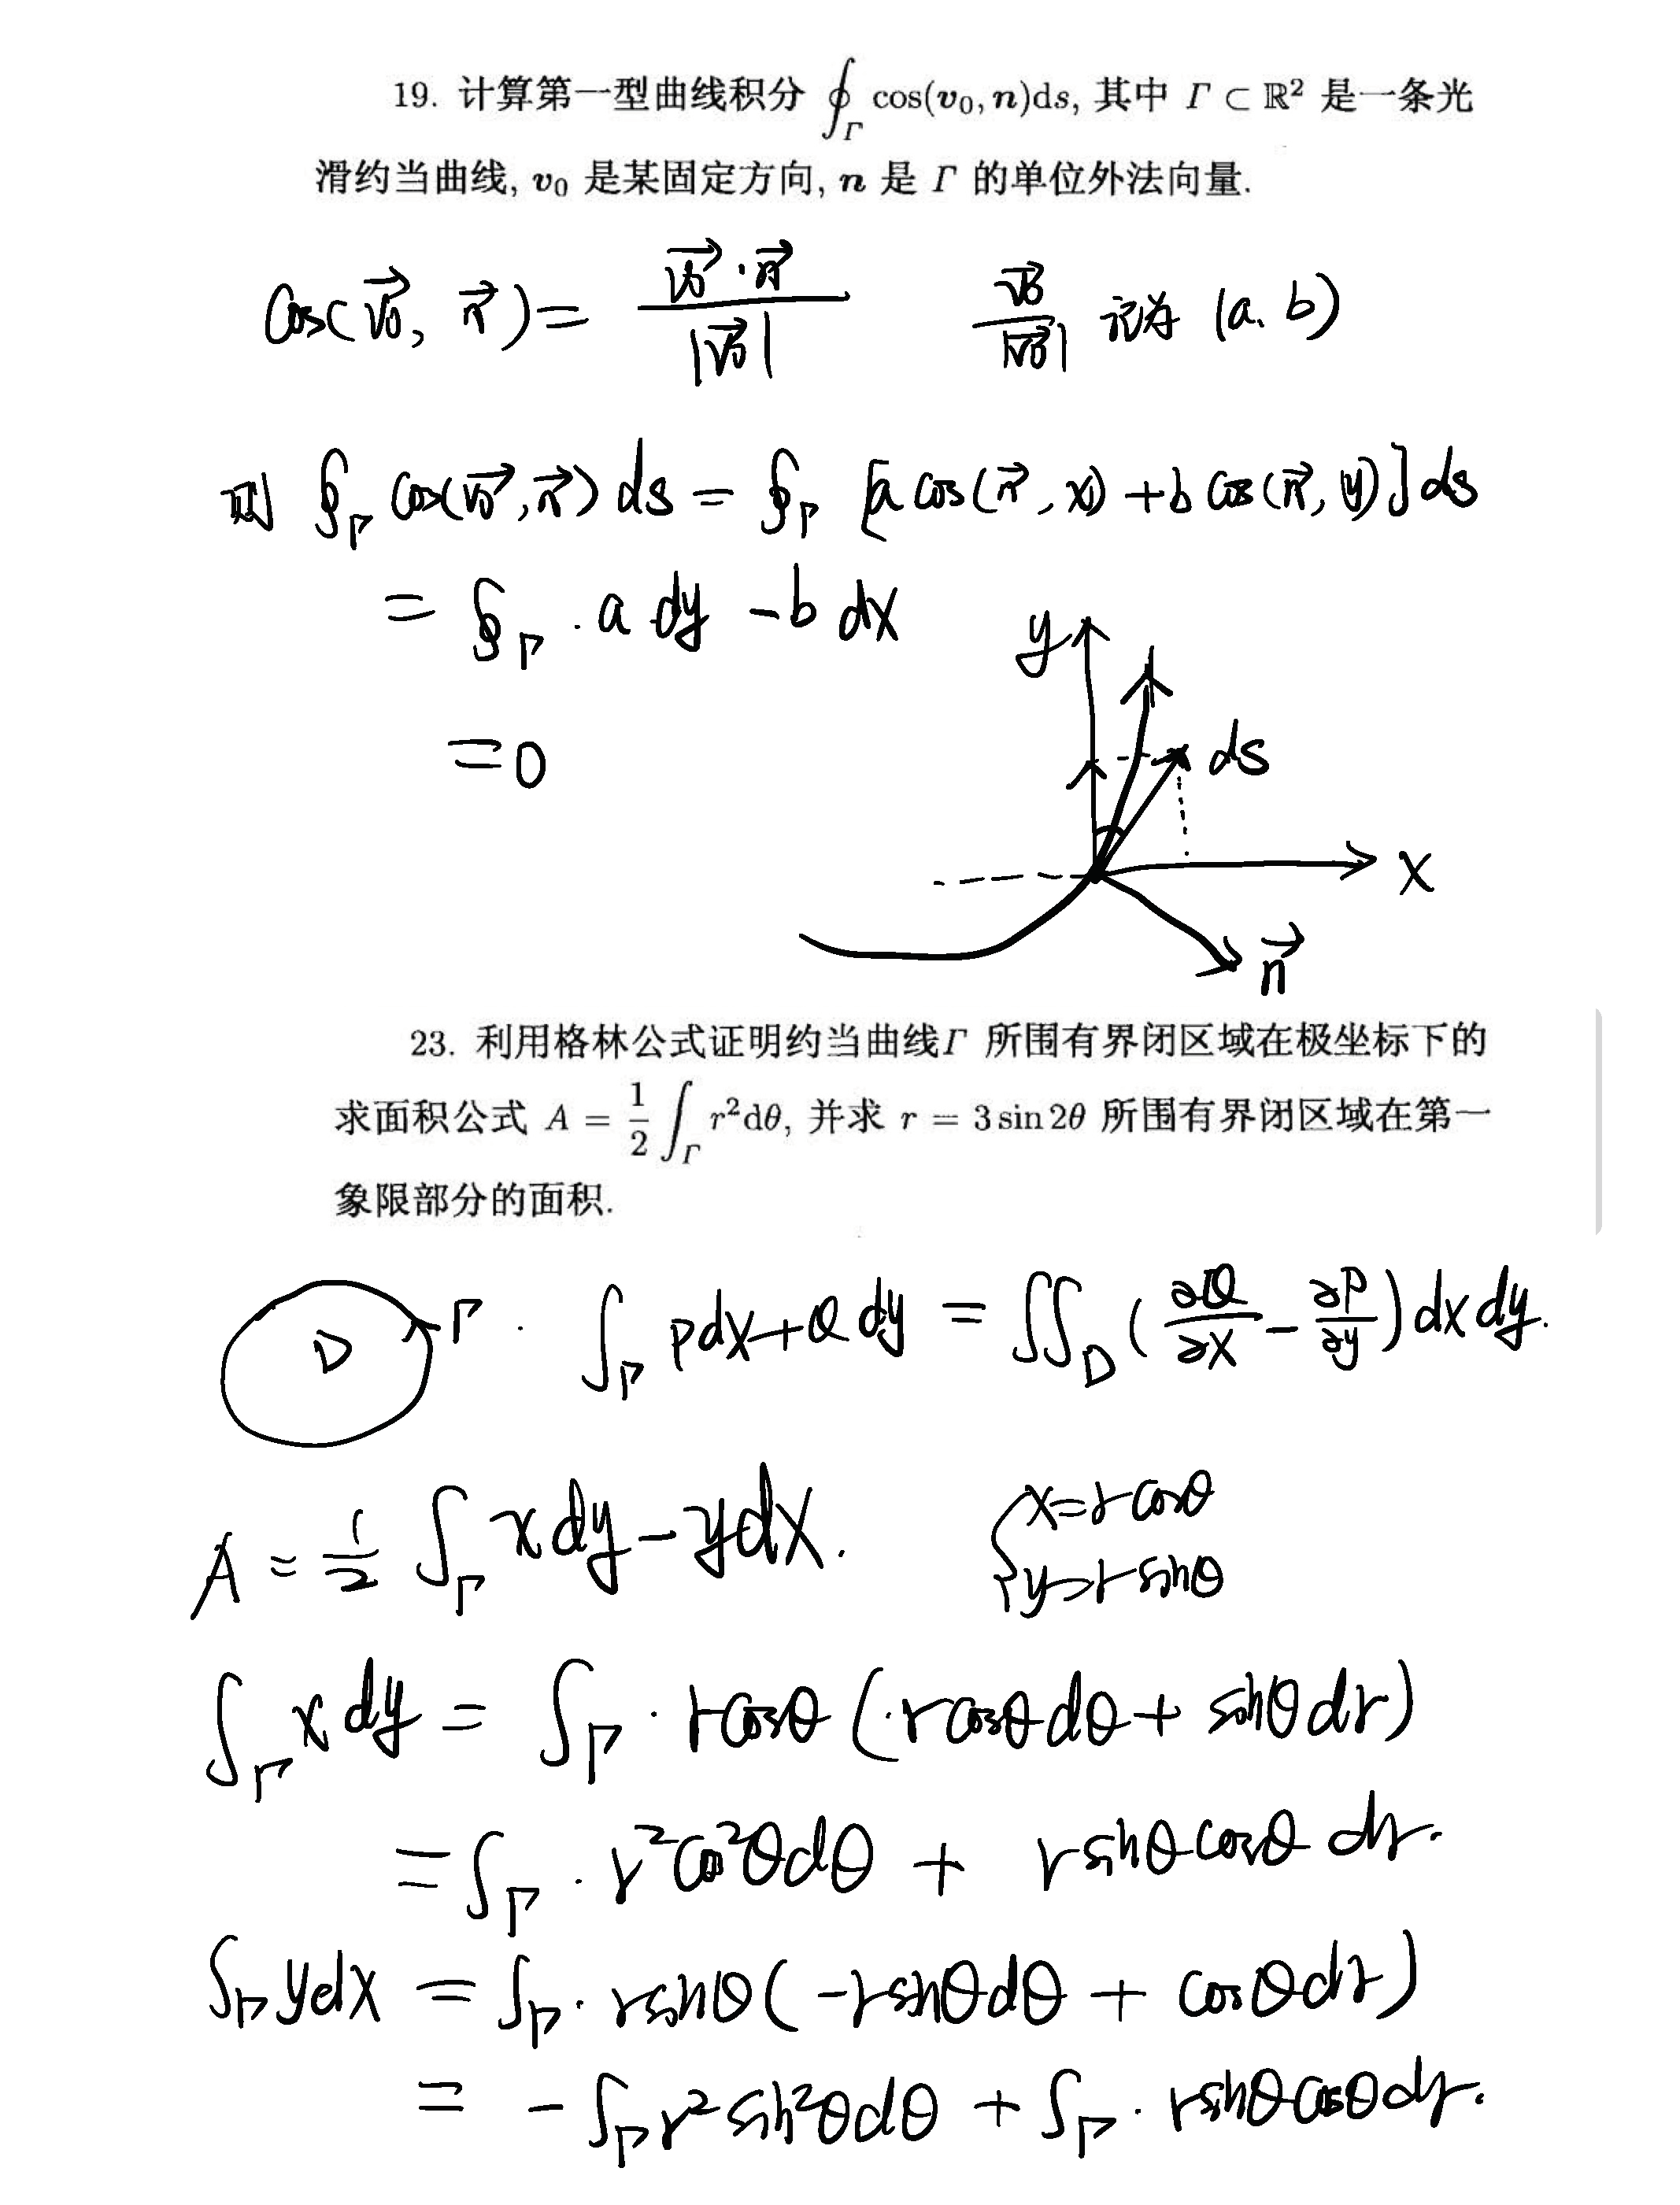 19. 计算第一型曲线积分 ∮_Γ cos(v₀, n)ds, 其中 Γ ⊂ ℝ² 是一条光
滑约当曲线, v₀ 是某固定方向, n 是 Γ 的单位外法向量.
cos(v₀⃗, n⃗) = (v₀⃗ · n⃗)/|v₀⃗|  v₀⃗/|v₀⃗| 记为 (a, b)
则 ∮_Γ cos(v₀⃗, n⃗) ds = ∮_Γ [a cos(n⃗, x) + b cos(n⃗, y)] ds
= ∮_Γ · a dy - b dx
= 0
y
ds
x
n⃗
23. 利用格林公式证明约当曲线Γ 所围有界闭区域在极坐标下的
求面积公式 A = 1/2 ∫_Γ r²dθ, 并求 r = 3 sin 2θ 所围有界闭区域在第一
象限部分的面积.
D Γ · ∫_Γ Pdx + Q dy = ∬_D (∂Q/∂x - ∂P/∂y) dx dy.
A = 1/2 ∫_Γ x dy - y dx. { x = r cosθ
y = r sinθ
∫_Γ x dy = ∫_Γ · r cosθ (· r cosθ dθ + sinθ dr)
= ∫_Γ · r² cos²θ dθ + r sinθ cosθ dr.
∫_Γ y dx = ∫_Γ · r sinθ (-r sinθ dθ + cosθ dr)
= - ∫_Γ r² sin²θ dθ + ∫_Γ · r sinθ cosθ dr.